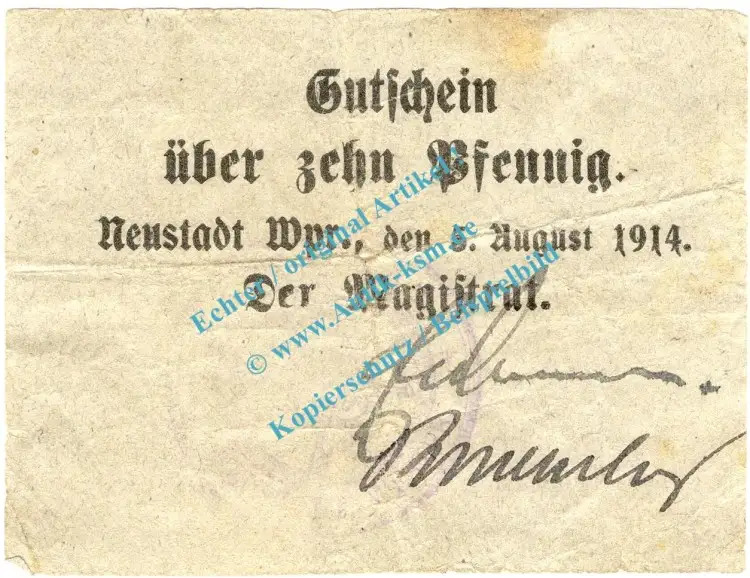 Gutschein
über zehn Pfennig.
Neustadt Wpr., den 8. August 1914.
Der Magistrat.
Echter / original Artikel!
© www.Antik-ksm.de
Kopierschutz / Beispielbild